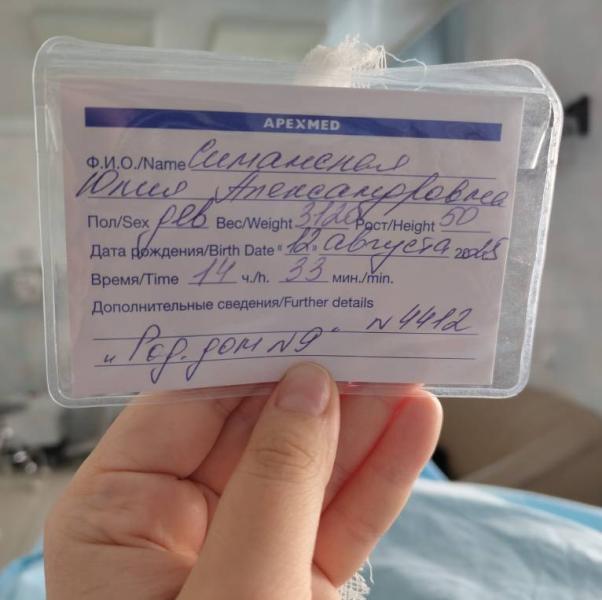 APEXMED
Ф.И.О./Name Симанская
Юлия Александровна
Пол/Sex дев Вес/Weight 3120 Рост/Height 50
Дата рождения/Birth Date "12" августа 2025
Время/Time 14 ч./h. 33 мин./min.
Дополнительные сведения/Further details
N 4412
"Род. дом N9"